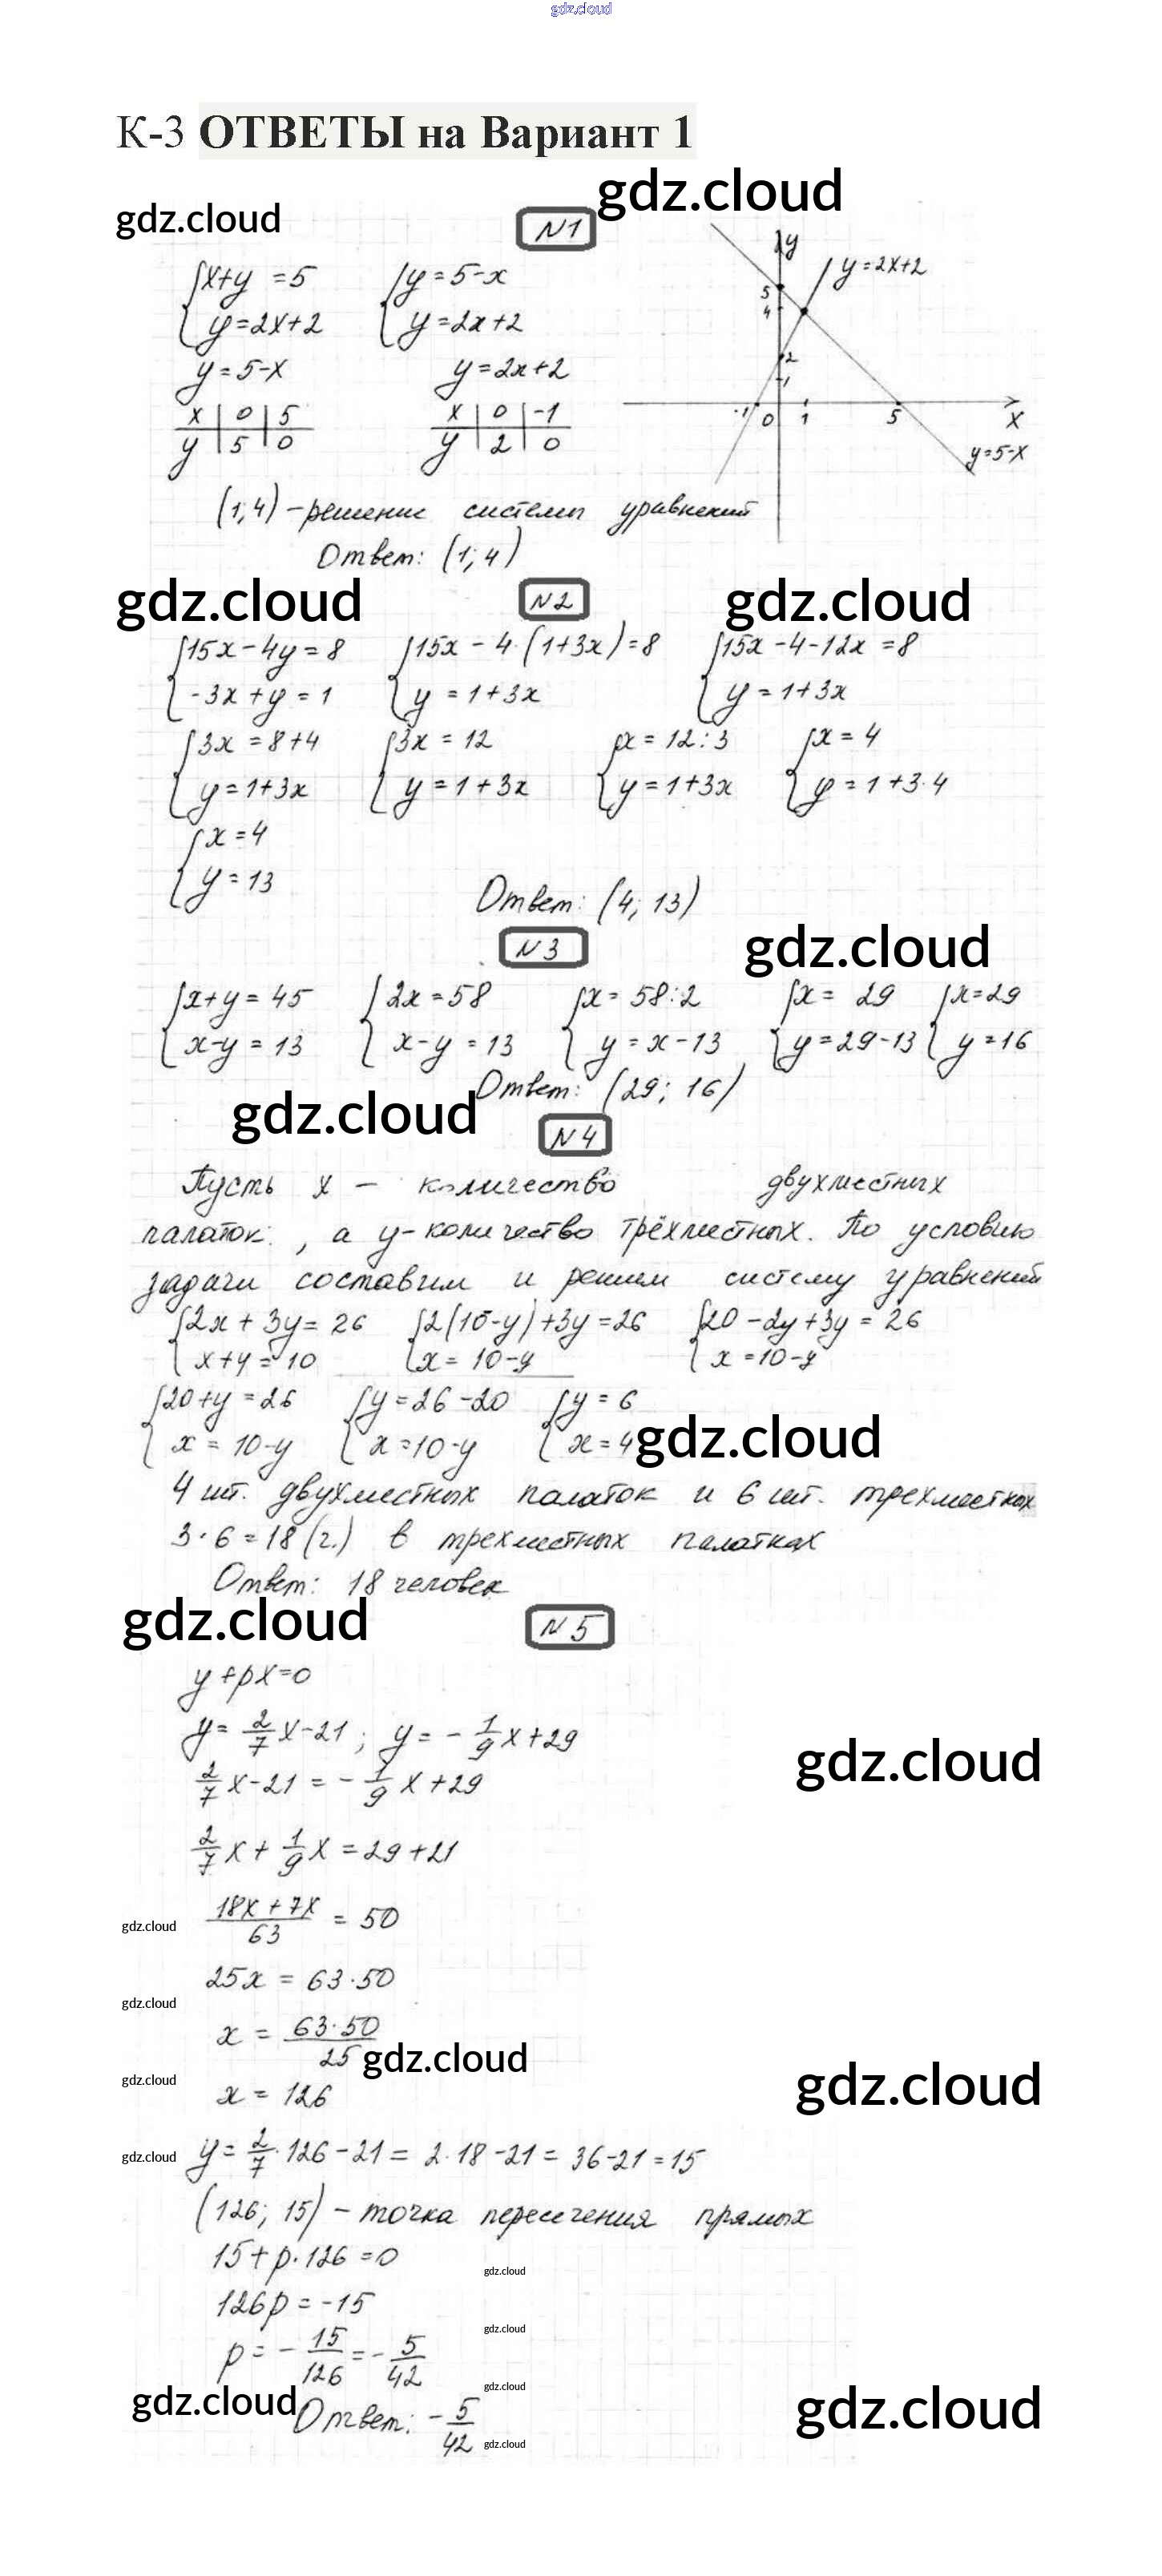 gdz.cloud
К-3 ОТВЕТЫ на Вариант 1
gdz.cloud
gdz.cloud
N1
{x+y =5 {y=5-x
y=2x+2 y=2x+2
y=5-x y=2x+2
x | 0 | 5 x | 0 | -1
y | 5 | 0 y | 2 | 0
y
y=2x+2
5
4
2
1
-1 0 1 5 x
y=5-x
(1;4) - решение системы уравнений
Ответ: (1; 4)
gdz.cloud N2 gdz.cloud
{15x-4y=8 {15x - 4·(1+3x)=8 {15x-4-12x =8
-3x+y=1 y=1+3x y=1+3x
{3x =8+4 {3x = 12 {x=12:3 {x=4
y=1+3x y=1+3x y=1+3x y=1+3·4
{x=4
y=13
Ответ: (4; 13)
N3 gdz.cloud
{x+y=45 {2x=58 {x=58:2 {x= 29 {x=29
x-y=13 x-y=13 y=x-13 y=29-13 y=16
Ответ: (29; 16)
gdz.cloud
N4
Пусть x - количество двухместных
палаток, а y-количество трёхместных. По условию
задачи составим и решим систему уравнений
{2x+3y=26 {2(10-y)+3y=26 {20-2y+3y=26
x+y=10 x=10-y x=10-y
{20+y=26 {y=26-20 {y=6
x=10-y x=10-y x=4
gdz.cloud
4 шт. двухместных палаток и 6 шт. трехместных
3·6=18(г.) в трехместных палатках
Ответ: 18 человек
gdz.cloud N5
y+px=0
y= 2/7 x-21; y= - 1/9 x+29
gdz.cloud
2/7 x-21 = - 1/9 x+29
2/7 x + 1/9 x = 29+21
gdz.cloud (18x+7x)/63 = 50
25x = 63·50
gdz.cloud
x = (63·50)/25
gdz.cloud
gdz.cloud gdz.cloud
x = 126
gdz.cloud y= 2/7·126-21= 2·18-21= 36-21=15
(126; 15) - точка пересечения прямых
15+p·126=0
gdz.cloud
126p=-15
gdz.cloud
p= - 15/126 = - 5/42
gdz.cloud
gdz.cloud Ответ: - 5/42 gdz.cloud
gdz.cloud